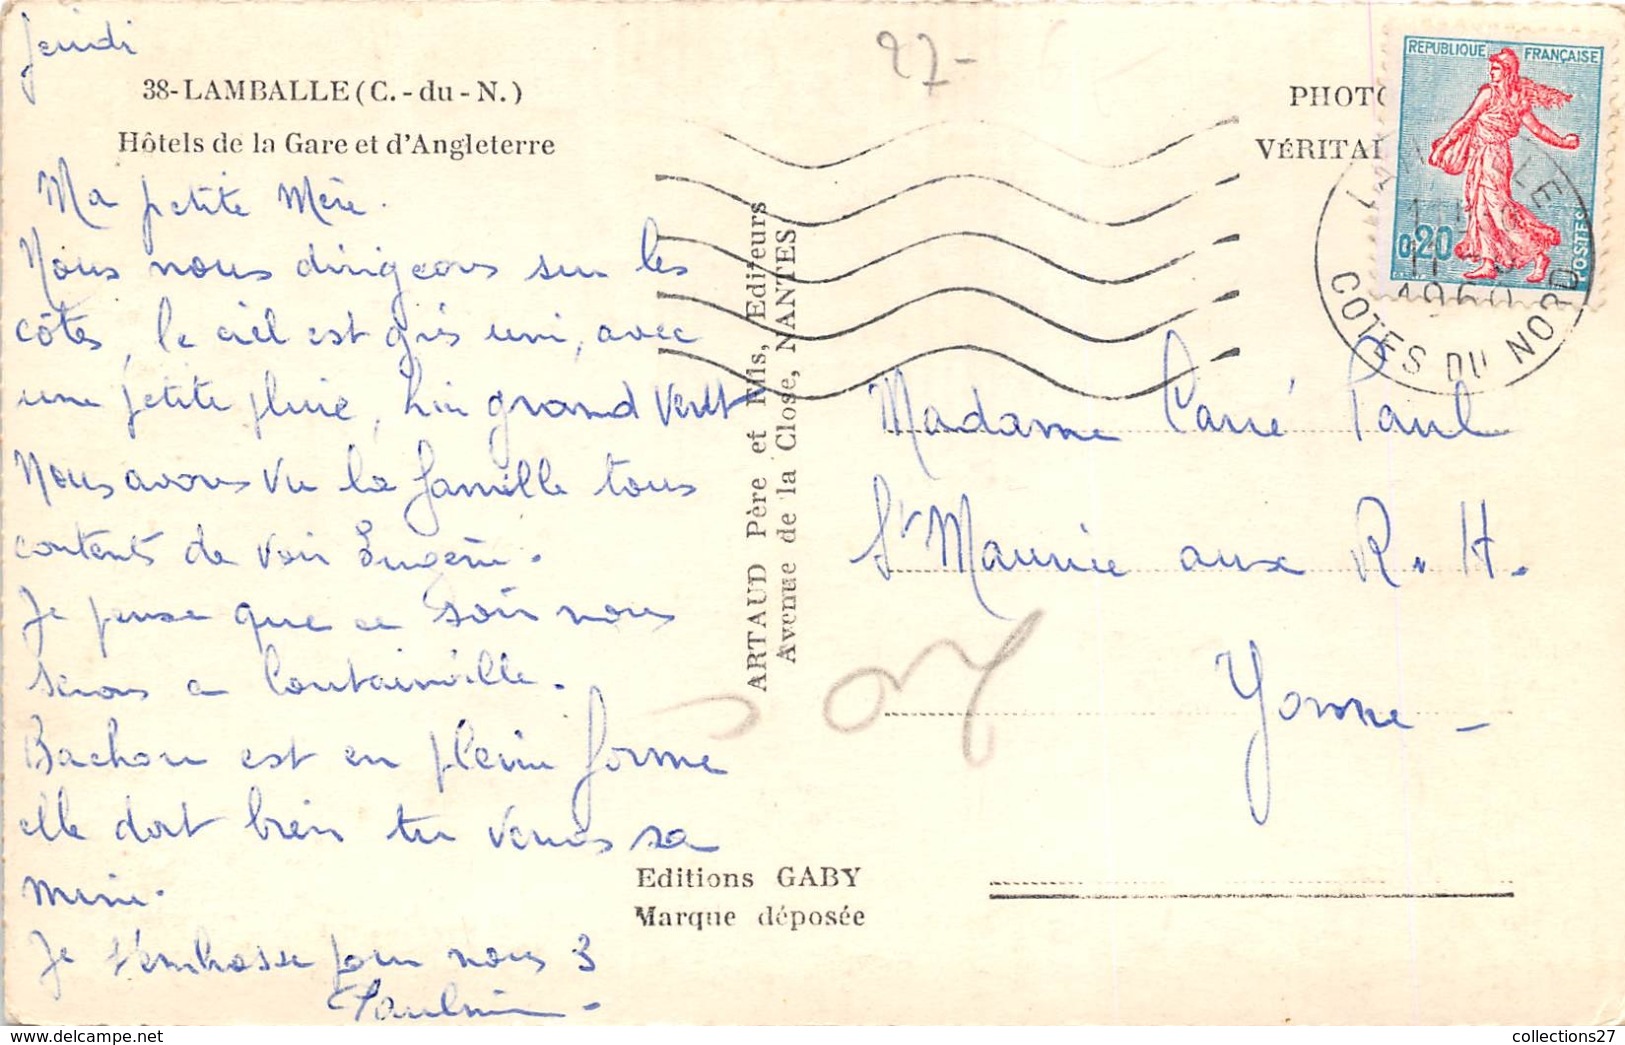 Jeudi
38-LAMBALLE (C.-du-N.)
Hôtels de la Gare et d'Angleterre
Ma petite Mère.
Nous nous dirigeons sur les
côtes, le ciel est gris uni, avec
une petite pluie, grand vent
Nous avons vu la famille tous
contents de voir
Je pense que ce soir nous
serons a Coutainville.
Bachou est en pleine forme
elle dort bien tu verras sa
mine.
Je t'embrasse pour nous 3
Paulin
ARTAUD Père et Fils, Editeurs
Avenue de la Close, NANTES
Editions GABY
Marque déposée
27-
PHOTO
VÉRITA
REPUBLIQUE FRANÇAISE
0,20
POSTES
1960
COTES DU NORD
Madame Carré Paul
St Maurice aux R. H.
Yonne -
collections27